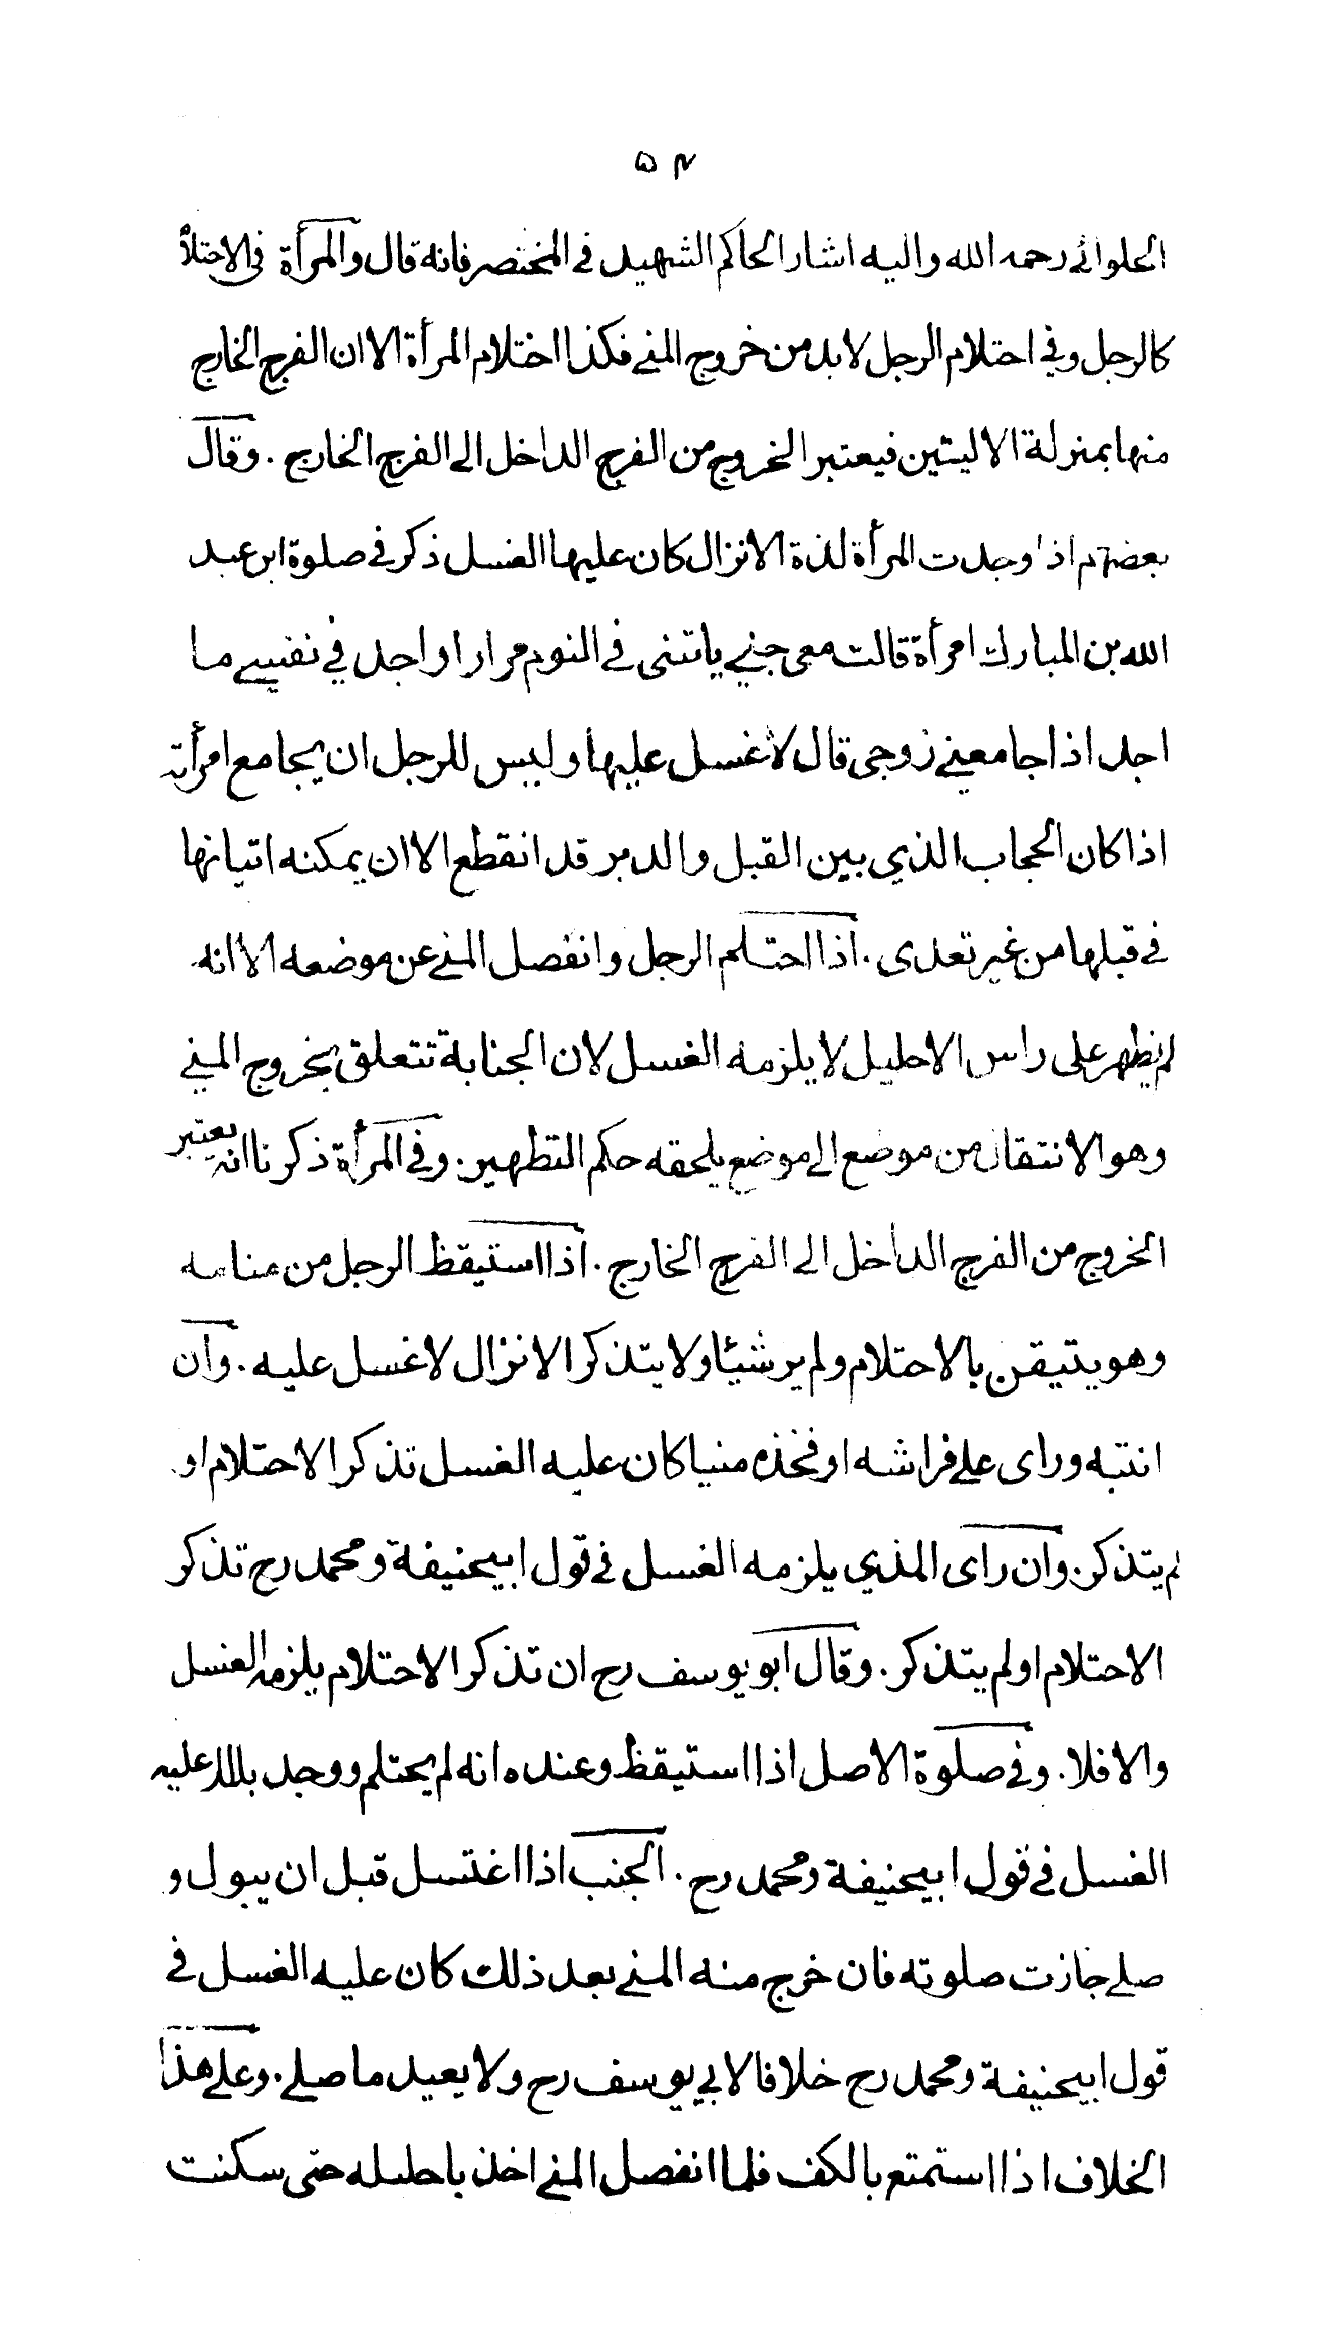 ٥٢
الحلوائے رحمه الله واليه اشار الحاكم الشهيد فے المختصر فانه قال والمرأة فى الاحتلام
كالرجل وفي احتلام الرجل لابد من خروج المنے فكذا احتلام المرأة الا ان الفرج الخارج
منها بمنزلة الاليتين فيعتبر الخروج من الفرج الداخل الے الفرج الخارج . وقال
بعضهم اذا وجدت المرأة لذة الانزال كان عليها الغسل ذكر فے صلوة ابن عبد
الله بن المبارك امرأة قالت معى جني ياتنى فے النوم مرارا واجد في نفسے ما
اجد اذا جامعنے زوجى قال لا غسل عليها وليس للرجل ان يجامع امرأته
اذا كان الحجاب الذي بين القبل والدبر قد انقطع الا ان يمكنه اتيانها
فے قبلها من غير تعدى . اذا احتلم الرجل وانفصل المنے عن موضعه الا انه
لم يظهر على راس الاحليل لا يلزمه الغسل لان الجنابة تتعلق بخروج المنے
وهو الانتقال من موضع الے موضع يلحقه حكم التطهير . وفے المرأة ذكرنا انه يعتبر
الخروج من الفرج الداخل الے الفرج الخارج . اذا استيقظ الرجل من منامه
وهو يتيقن بالاحتلام ولم ير شيئا ولا يتذكر الانزال لا غسل عليه . وان
انتبه وراى علے فراشه او فخذه منيا كان عليه الغسل تذكر الاحتلام او
لم يتذكر . وان راى المذي يلزمه الغسل فے قول ابيحنيفة ومحمد رح تذكر
الاحتلام او لم يتذكر . وقال ابو يوسف رح ان تذكر الاحتلام يلزمه الغسل
والا فلا . وفے صلوة الاصل اذا استيقظ وعنده انه لم يحتلم ووجد بللا عليه
الغسل فے قول ابيحنيفة ومحمد رح . الجنب اذا اغتسل قبل ان يبول و
صلے جازت صلوته فان خرج منه المنے بعد ذلك كان عليه الغسل فے
قول ابيحنيفة ومحمد رح خلافا لابي يوسف رح ولا يعيد ما صلے . وعلے هذا
الخلاف اذا استمتع بالكف فلما انفصل المنے اخذ باحليله حتى سكنت